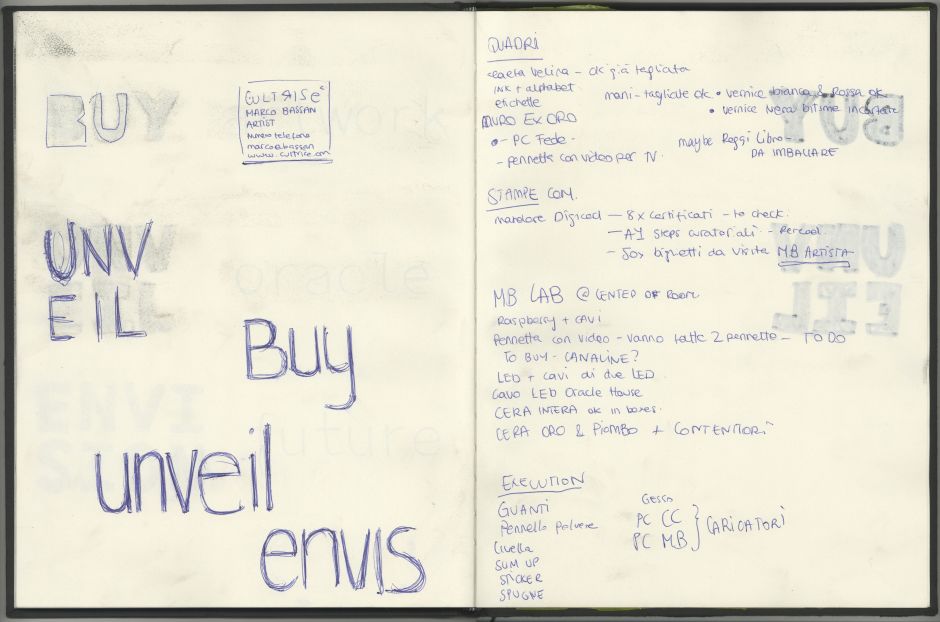 BUY
CULTRISE
MARCO BASSAN
ARTIST
Numero telefono
marco@bassan
UNV
EIL
Buy
unveil
envis
oracle
future
ENVI
QUADRI
carta velina - ok già tagliata
INK + alphabet
etichette
mani-tagliate ok • vernice bianca & Rossa ok
• vernice nera bitume
MURO EX ORO
•- PC Fede -
- pennetta con video per TV.
maybe Reggi Libro -
DA IMBALLARE
STAMPE COM.
mandare Digicool - 8 x certificati - to check.
- A4 steps curatoriali -
- 50x biglietti da visita MB ARTISTA
MB LAB @ CENTER OF ROOM
Raspberry + CAVI
Pennetta con video - vanno fatte 2 pennette - TO DO
TO BUY - CANALINE?
LED + cavi di due LED
Cavo LED Oracle House
CERA INTERA ok in boxes.
CERA ORO & PIOMBO + CONTENITORI
EXECUTION
GUANTI
Pennello polvere
Livella
SUM UP
STICKER
SPUGNE
Gesso
PC CC
PC MB } CARICATORI
BUY
UNV
EIL